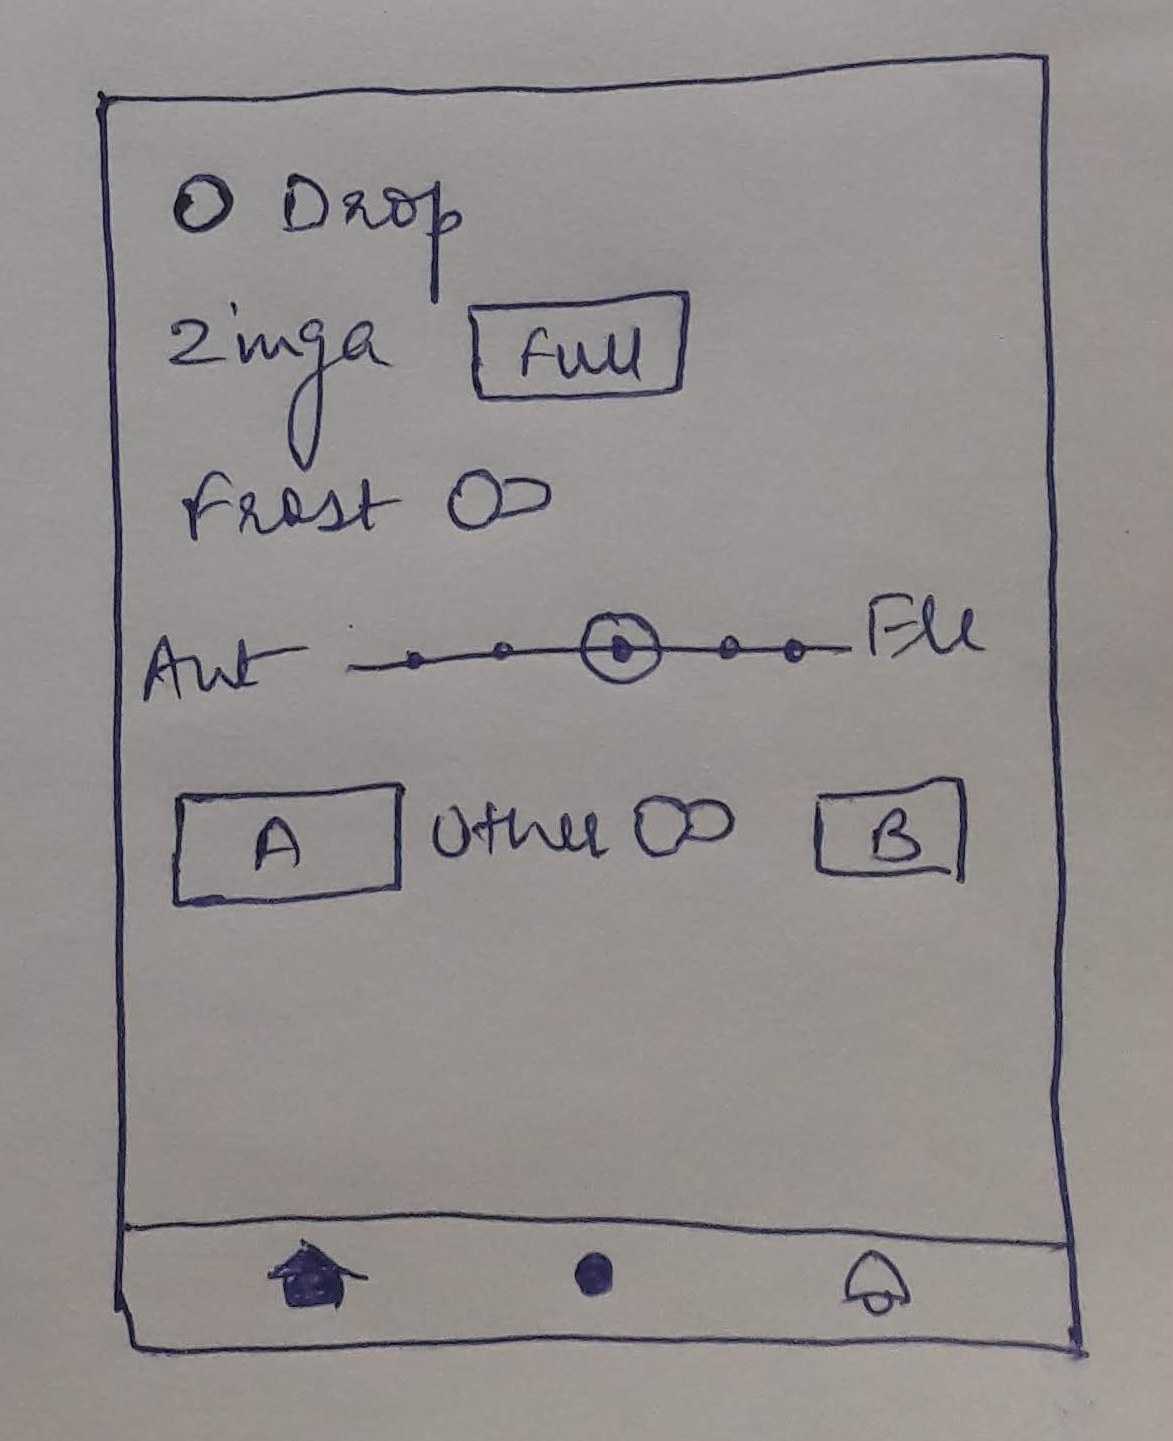 Drop
Zinga Full
Frost
Aut Ele
A Other B